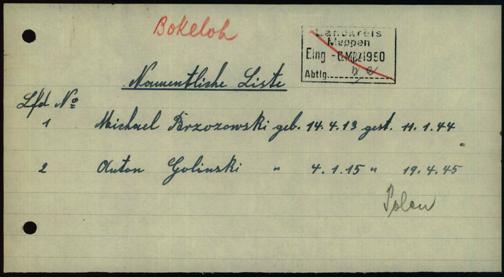 Bokeloh
Landkreis
Meppen
Eing. - 6. MRZ. 1950
Abtlg.
Namentliche Liste
Lfd No
1 Michael Brzozowski geb. 14.4.13 gest. 11.1.44
2 Anton Golinski " 4.1.15 " 19.4.45
Polen